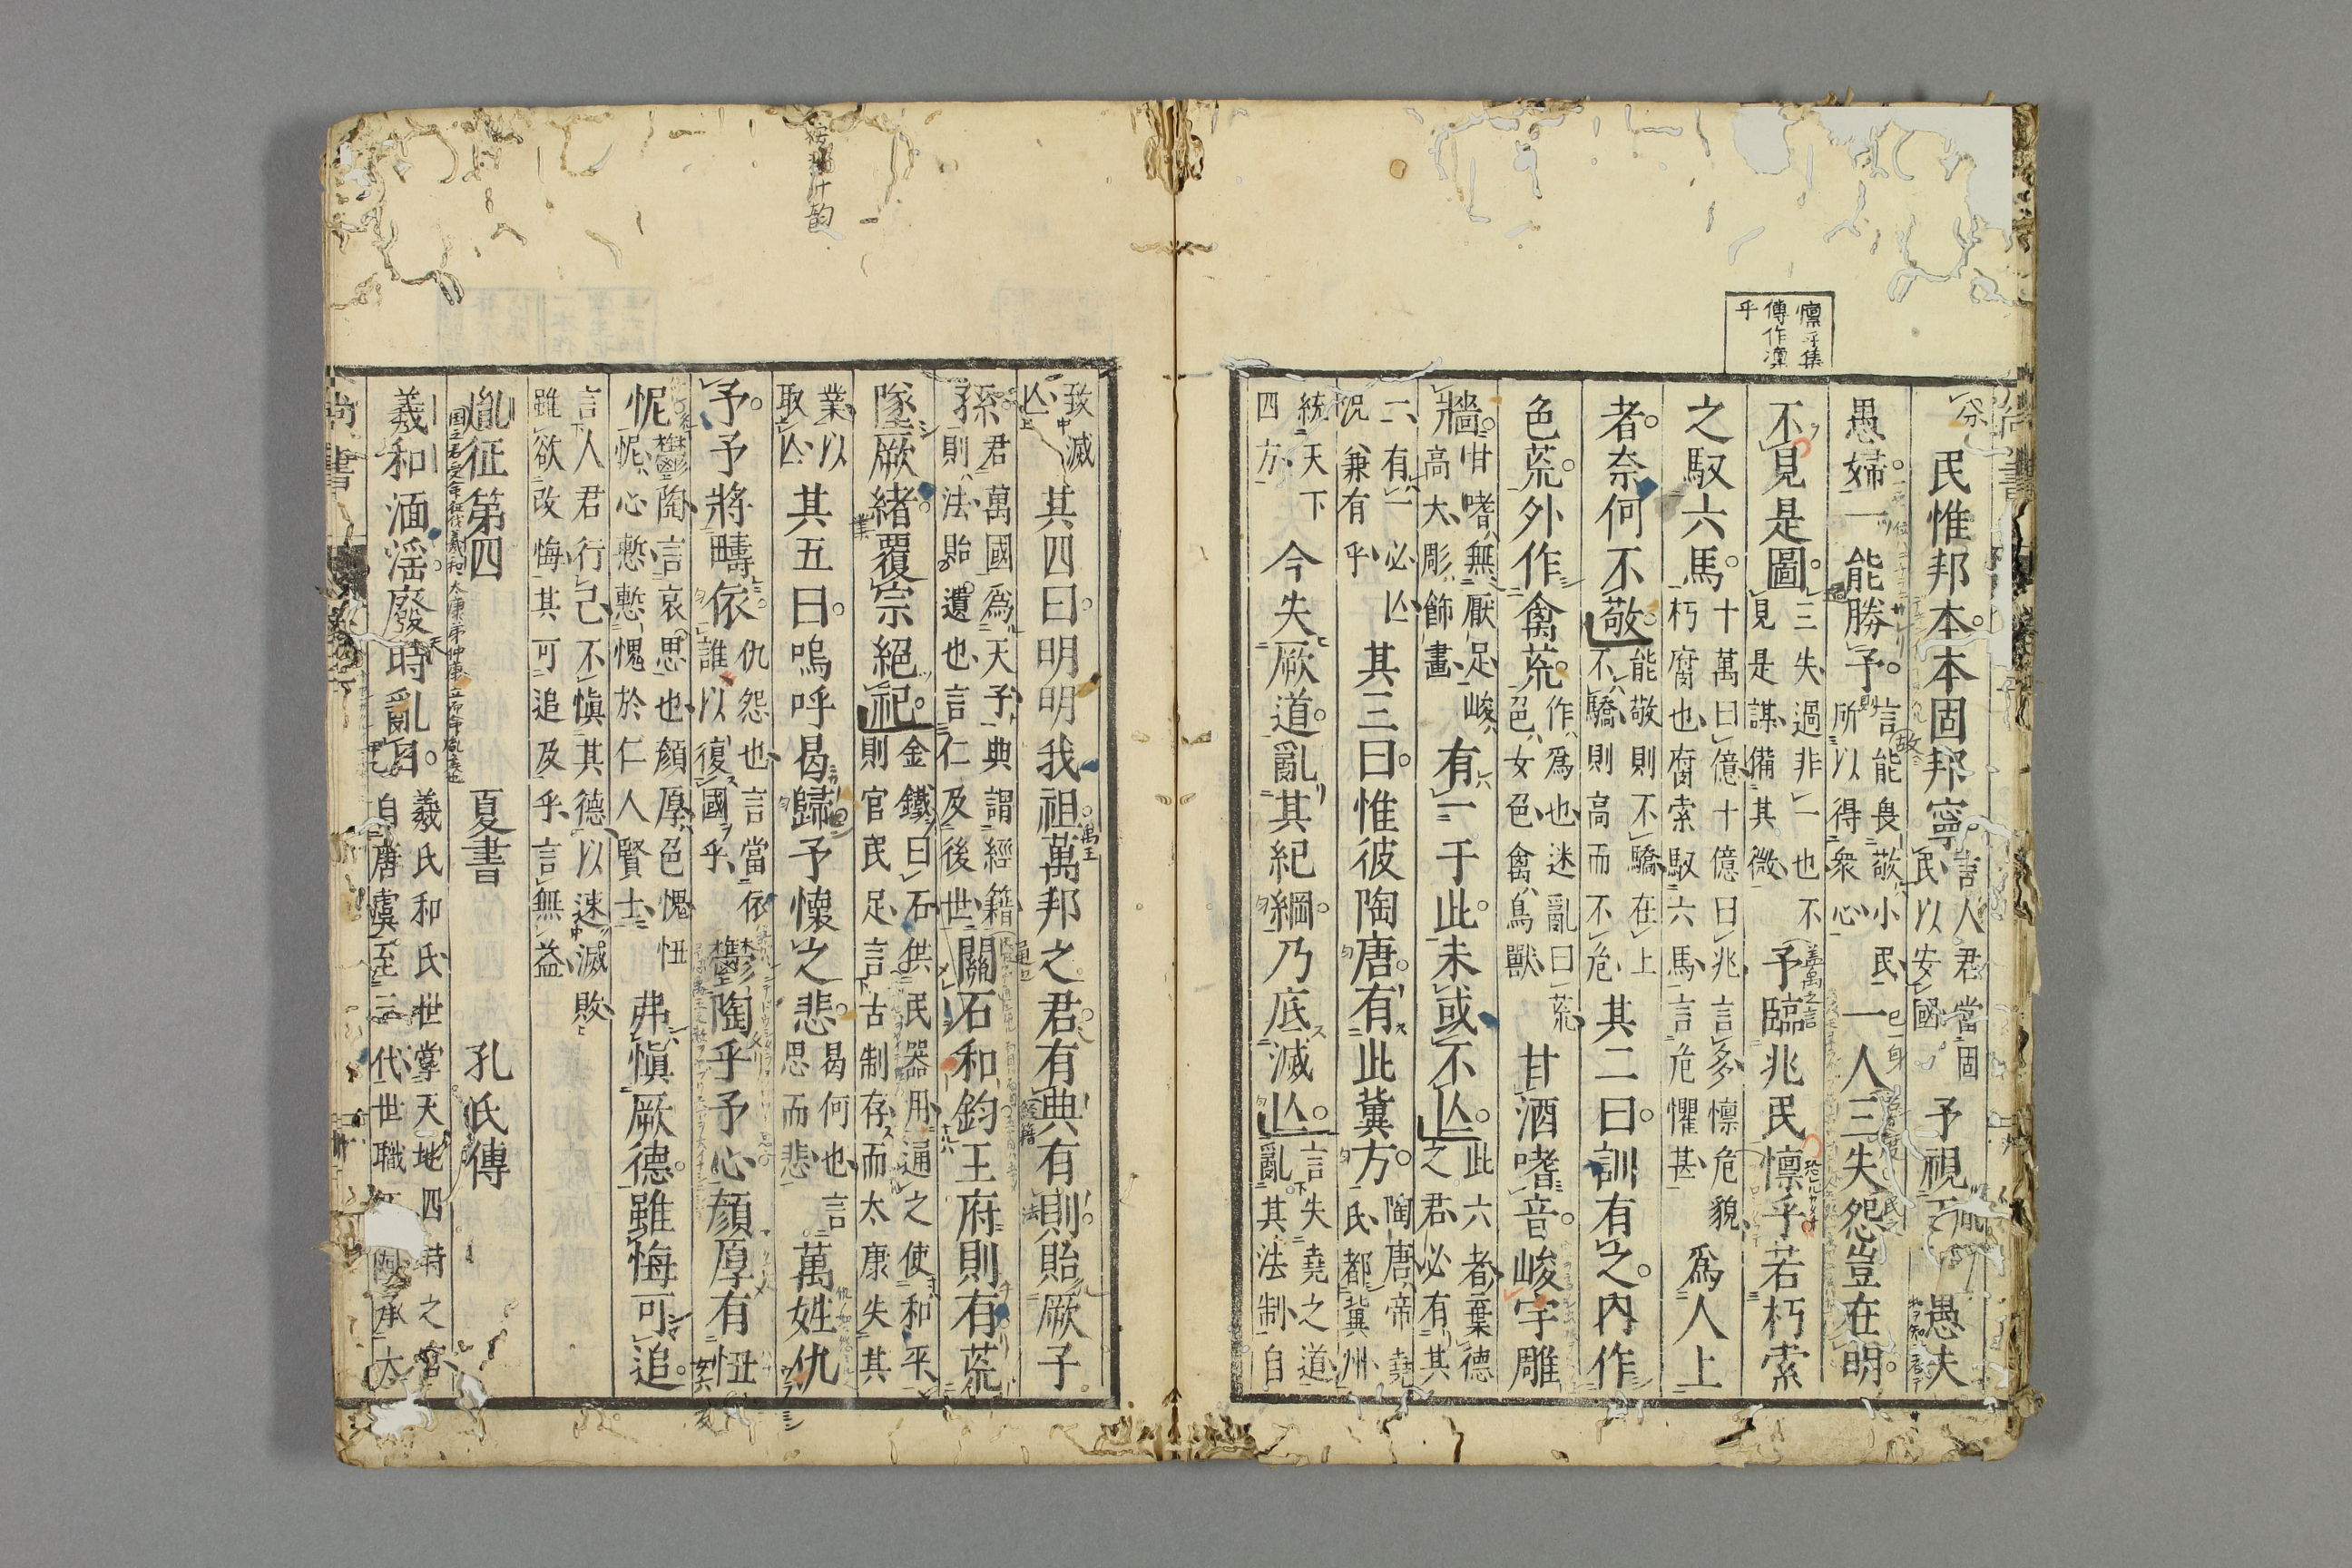 懔乎集
傳作凜
乎
分
民惟邦本本固邦寧
言人君當固
民以安國
予視天下愚夫
愚婦一能勝予
言能畏敬小民
所以得衆心
一人三失怨豈在明
不見是圖
三失過非一也不
見是謀備其微
予臨兆民懔乎若朽索
之馭六馬
十萬曰億十億曰兆言多懔危貌
朽腐也腐索馭六馬言危懼甚
爲人上
者奈何不敬
能敬則不驕在上
不驕則高而不危
其二曰訓有之內作
色荒外作禽荒
作爲也迷亂曰荒
色女色禽鳥獸
甘酒嗜音峻宇雕
牆
甘嗜無厭足峻
高大彫飾畫
有一于此未或不亾
此六者棄德
之君必有其
一有一必亾
况兼有乎
其三曰惟彼陶唐有此冀方
陶唐帝堯
氏都冀州
統天下
四方
今失厥道亂其紀綱乃底滅亾
言失堯之道
亂其法制自
致滅
亾
其四曰明明我祖萬邦之君有典有則貽厥子
孫
君萬國爲天子典謂經籍
則法貽遺也言仁及後世
關石和鈞王府則有荒
墜厥緒覆宗絕祀
金鐵曰石供民器用通之使和平
則官民足言古制存而太康失其
業以
取亾
其五曰嗚呼曷歸予懷之悲
曷何也言
思而悲
萬姓仇
予予將疇依
仇怨也言當依
誰以復國乎
鬱陶乎予心顏厚有忸
怩
鬱陶言哀思也顏厚色愧忸
怩心慙慙愧於仁人賢士
弗愼厥德雖悔可追
言人君行己不愼其德以速滅敗
雖欲改悔其可追及乎言無益
胤征第四 夏書 孔氏傳
羲和湎淫廢時亂日
羲氏和氏世掌天地四時之官
自唐虞至三代世職
承太
尚書